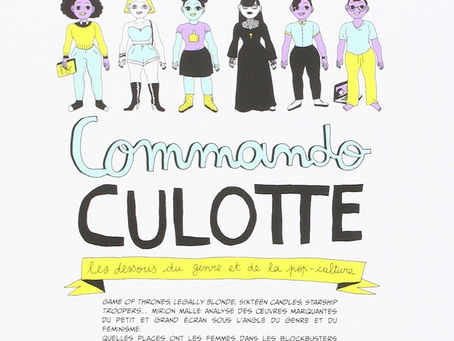 Commando
CULOTTE
les dessous du genre et de la pop-culture
GAME OF THRONES, LEGALLY BLONDE, SIXTEEN CANDLES, STARSHIP
TROOPERS... MIRION MALLE ANALYSE DES ŒUVRES MARQUANTES
DU PETIT ET GRAND ÉCRAN SOUS L'ANGLE DU GENRE ET DU
FÉMINISME.
QUELLES PLACES ONT LES FEMMES DANS LES BLOCKBUSTERS